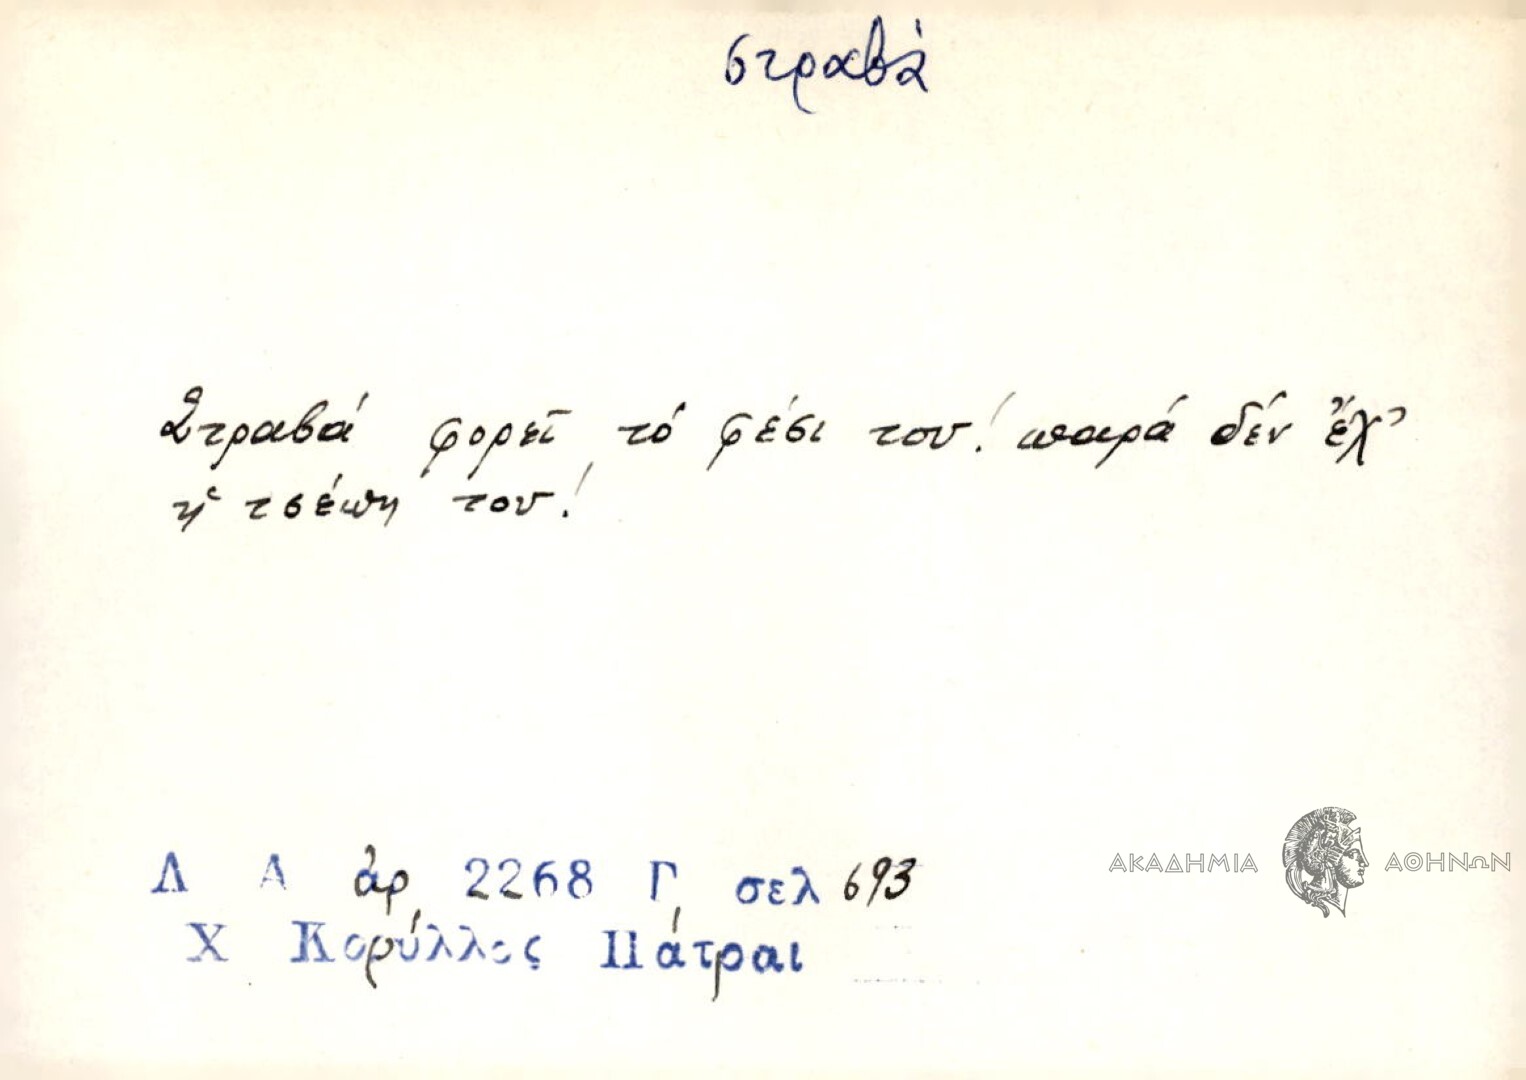 στραβὰ
Στραβά φορεῖ τό φέσι του! παρά δέν ἔχ'
ἡ τσέπη του!
Λ Α ἀρ 2268 Γ, σελ 693
Χ Κορύλλος Πάτραι
ΑΚΑΔΗΜΙΑ ΑΘΗΝΩΝ